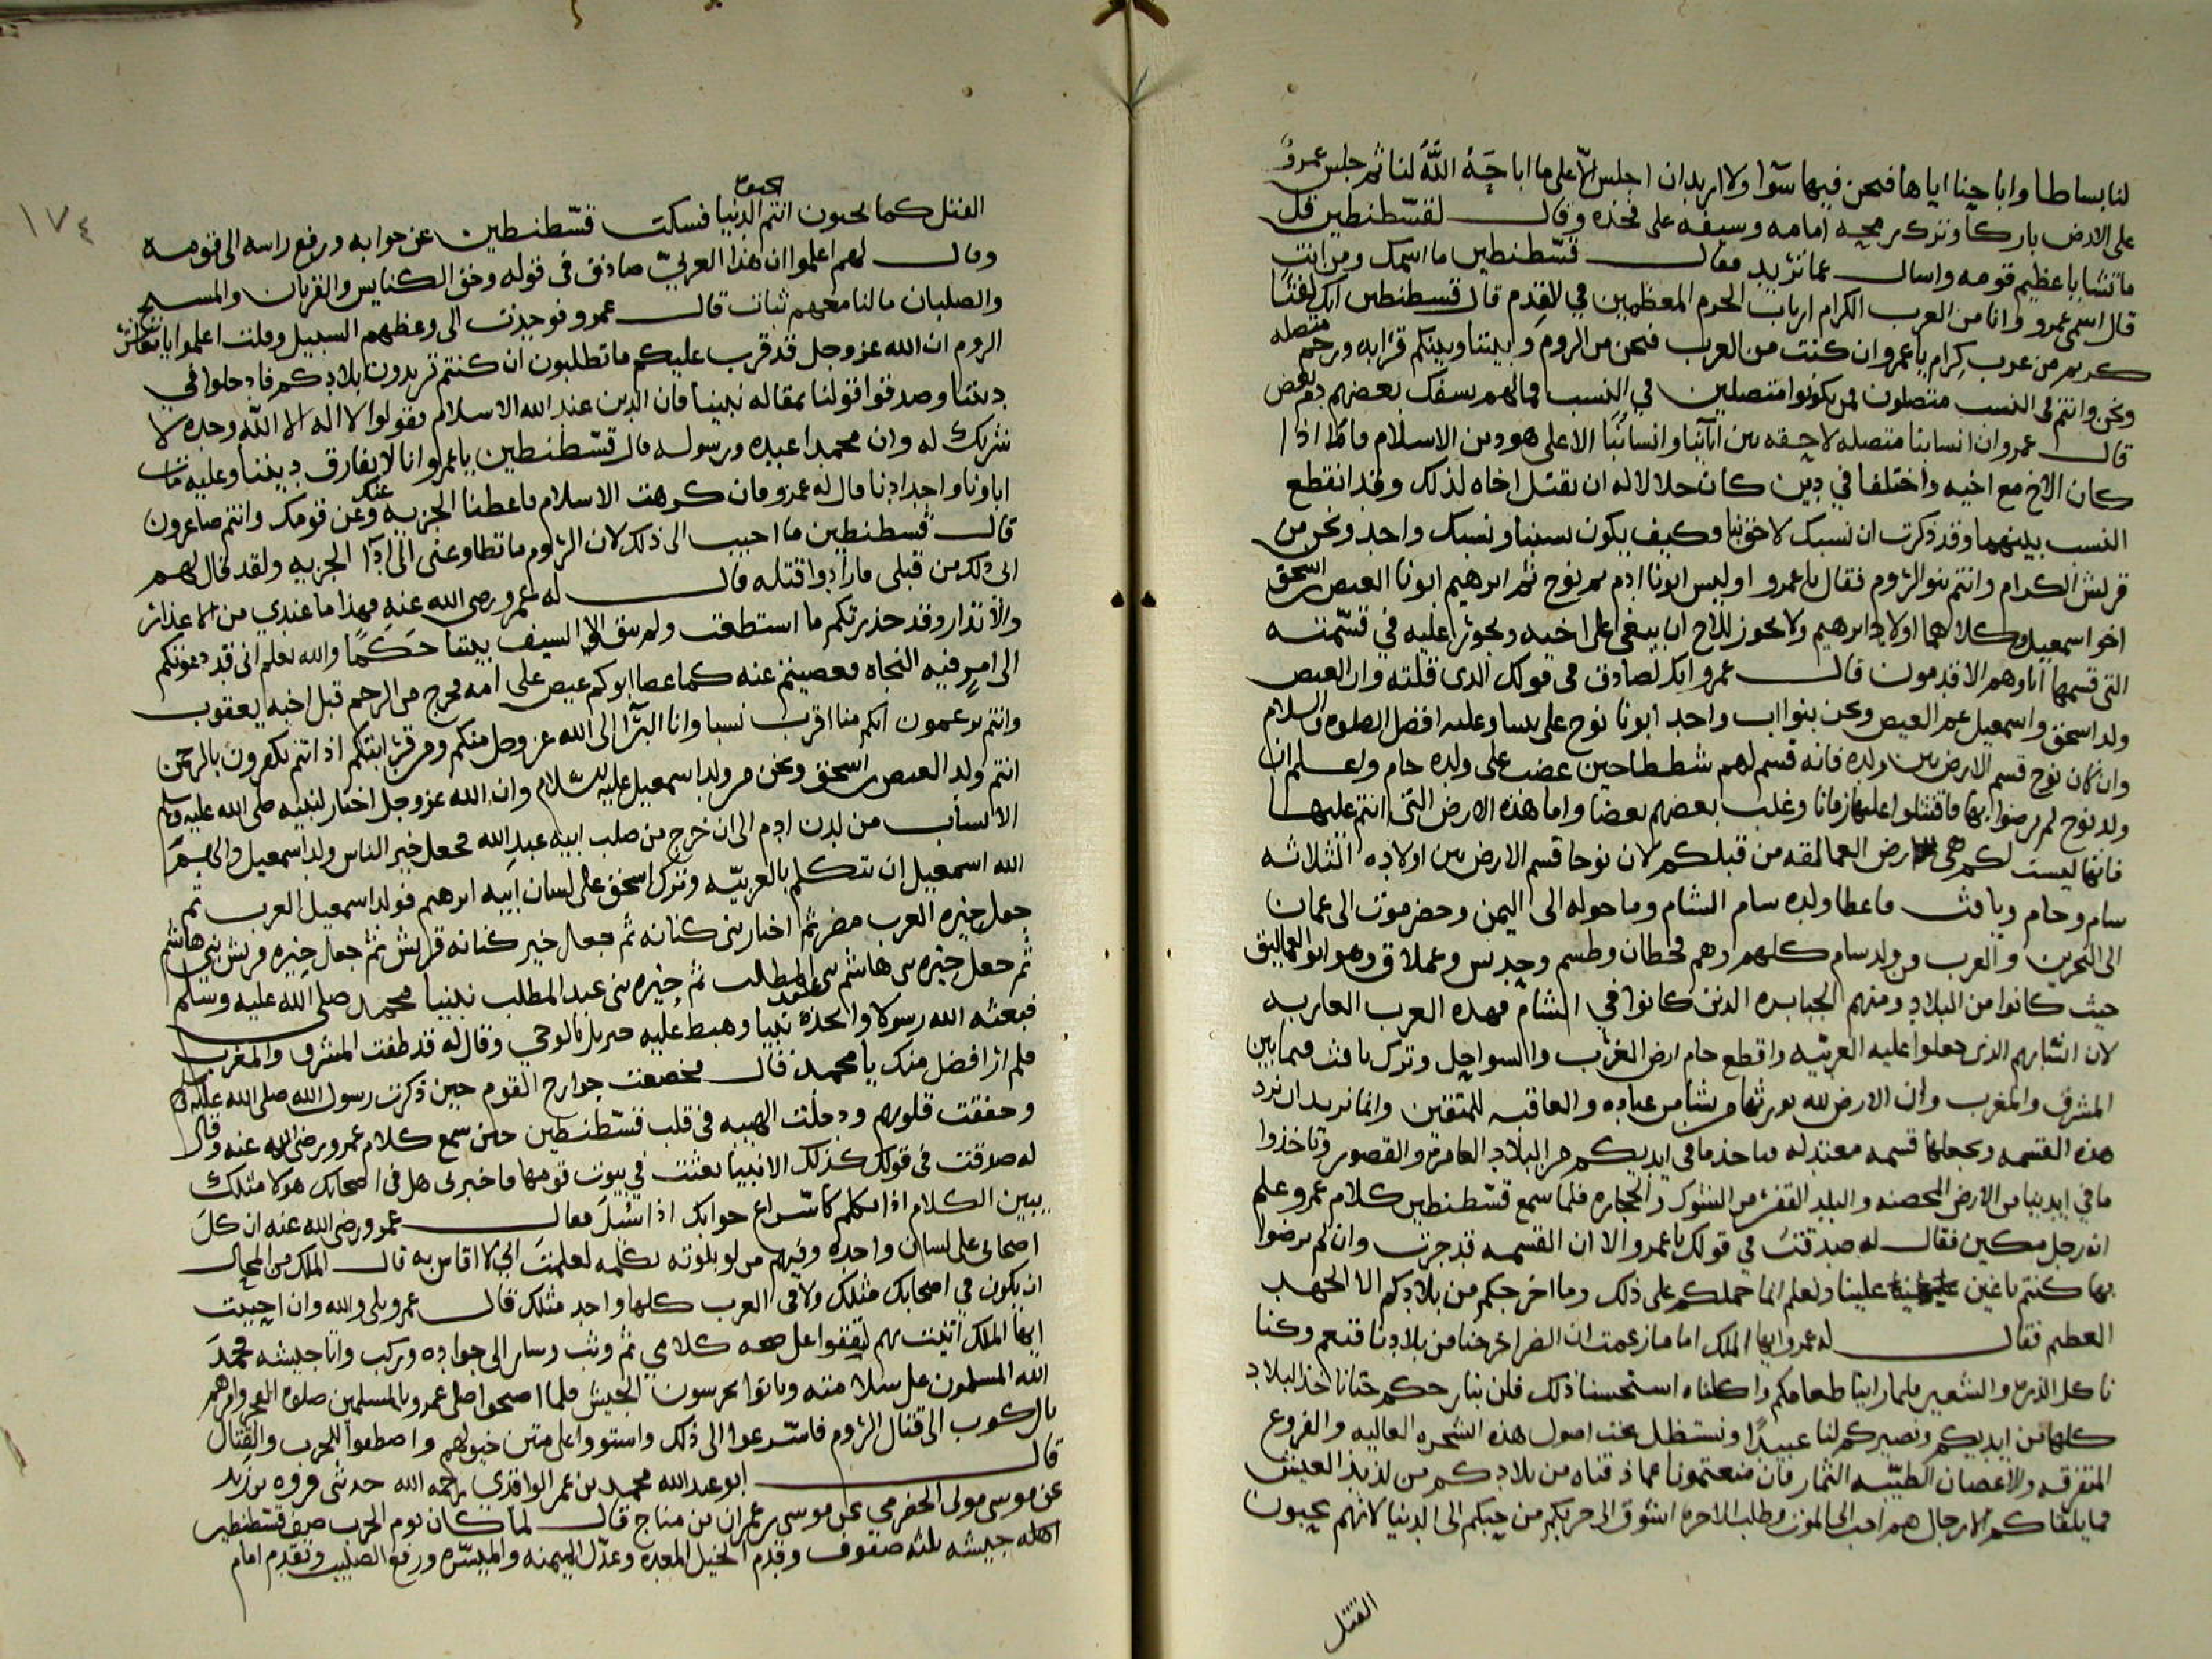 لنا بساطا واباحنا اياها فنحن فيها سوا ولا اريد ان اجلس الا على ما اباحه الله لنا ثم جلس عمرو
على الارض باركا وترك رمحه امامه وسيفه على فخذه وقال لقسطنطين قل
ما تشا يا عظيم قومه واسال عما تريد فقال قسطنطين ما اسمك ومن انت
قال اسمي عمرو وانا من العرب الكرام ارباب الحرم المعظمين في القدم قال قسطنطين انك لفتا
كريم من عرب كرام يا عمرو ان كنت من العرب فنحن من الروم وبيننا وبينكم قرابه ورحم متصله
ونحن وانتم في النسب متصلون فمن يكونوا متصلين في النسب فما لهم يسفك بعضهم دم بعض
قال عمرو ان انسابنا متصله لاحقه من ابآئنا وانسابنا الاعلى هو دين الاسلام فاما اذا
كان الاخ مع اخيه واختلفا في دين كان حلالا له ان يقتل اخاه لذلك وقد انقطع
النسب بينهما وقد ذكرت ان نسبك لاحق بنا وكيف يكون نسبنا ونسبك واحد ونحن من
قريش الكرام وانتم بنو الروم فقال يا عمرو اوليس ابونا ادم ثم نوح ثم ابرهيم ابونا العيص اسحق
اخو اسمعيل وكلاهما اولاد ابرهيم ولا يجوز للاخ ان يبغي على اخيه ويجور عليه في قسمته
التي قسمها اباوهم الاقدمون قال عمرو انك لصادق في قولك الذي قلته وان العيص
ولد اسحق واسمعيل عم العيص ونحن بنو اب واحد ابونا نوح على نبينا وعليه افضل الصلوه والسلام
وان كان نوح قسم الارض بين ولده فانه قسم لهم شططا حين غضب على ولده حام واعلم ان
ولد نوح لم يرضوا بها فاقتتلوا عليها زمانا وغلب بعضهم بعضا واما هذه الارض التي انتم عليها
فانها ليست لكم هي ارض العمالقه من قبلكم لان نوحا قسم الارض بين اولاده الثلاثه
سام وحام ويافث فاعطا ولده سام الشام وما حوله الى اليمن وحضرموت الى عمان
الى البحرين والعرب من ولد سام كلهم وهم قحطان وطسم وجديس وعملاق وهو ابو العماليق
حيث كانوا من البلاد ومنهم الجبابره الذين كانوا في الشام فهذه العرب العاربه
لان لسانهم الذي جعلوا عليه العربيه واقطع حام ارض الغرب والسواحل وترك يافث فيما بين
المشرق والمغرب وان الارض لله يورثها من يشا من عباده والعاقبه للمتقين وانما نريد ان نرد
هذه القسمه ونجعلها قسمه معتدله فناخذ ما في ايديكم من البلاد العامره والقصور وتاخذوا
ما في ايدينا من الارض المحصنه والبلد القفر من الشوك والحجاره فلما سمع قسطنطين كلام عمرو علم
انه رجل مكين فقال له صدقت في قولك يا عمرو الا ان القسمه قد جرت وان لم ترضوا
بها كنتم باغين علينا ونعلم انما حملكم على ذلك وما اخرجكم من بلادكم الا الجهد
العظيم فقال له عمرو ايها الملك اما ما زعمت ان الضر اخرجنا من بلادنا فنعم وكنا
ناكل الذره والشعير فلما راينا طعامكم واكلناه استحسنا ذلك فلن نبارحكم حتانا خذ البلاد
كلها من ايديكم ونصيركم لنا عبيدا ونستظل تحت اصول هذه الشجره العاليه والفروع
المتفرقه والاغصان الطيبه الثمار فان منعتمونا عما ذقناه من بلادكم من لذيذ العيش
فما يلقاكم الا رجال هم احب الى الموت وطلب الاخره اشوق الى حربكم من حبكم الى الدنيا لانهم يحبون
القتل
١٧٤
القتل كما تحبون انتم الدنيا فسكت قسطنطين عن جوابه ورفع راسه الى قومه
وقال لهم اعلموا ان هذا العربي صادق في قوله وحق الكنايس والقربان والمسيح
والصلبان ما لنا معهم ثبات قال عمرو فوجدت الى وعظهم السبيل وقلت اعلموا يا معاشر
الروم ان الله عز وجل قد قرب عليكم ما تطلبون ان كنتم تريدون بلادكم فادخلوا في
ديننا وصدقوا قولنا بمقاله نبينا فان الدين عند الله الاسلام فقولوا لا اله الا الله وحده لا
شريك له وان محمدا عبده ورسوله قال قسطنطين يا عمرو انا لا نفارق ديننا وعليه مات
اباونا واجدادنا قال له عمرو فان كرهت الاسلام فاعطنا الجزيه عنك وعن قومك وانتم صاغرون
قال قسطنطين ما اجيب الى ذلك لان الروم ما تطاوعني الى ادآ الجزيه ولقد قال لهم
الى ذلك من قبلي فارادوا قتله قال له عمرو رضي الله عنه فهذا ما عندي من الاعذار
والانذار وقد حذرتكم ما استطعت ولم يبق الا السيف بيننا حكما والله يعلم اني قد دعوتكم
الى امر فيه النجاه فعصيتم عنه كما عصا ابوكم عيص على امه فخرج من الرحم قبل اخيه يعقوب
وانتم تزعمون انكم منا اقرب نسبا وانا البرآ الى الله عز وجل منكم ومن قرابتكم اذ انتم تكفرون بالرحمن
انتم ولد العيص اسحق ونحن من ولد اسمعيل عليه السلام وان الله عز وجل اختار لنبيه صلى الله عليه وسلم
الانساب من لدن ادم الى ان خرج من صلب ابيه عبد الله فجعل خير الناس ولد اسمعيل والهم
الله اسمعيل ان تتكلم بالعربيه وترك اسحق على لسان ابيه ابرهيم فولد اسمعيل العرب ثم
جعل خيره العرب مضر ثم اختار بني كنانه ثم جعل خير كنانه قريش ثم جعل خيره قريش بني هاشم
ثم جعل خيره بني هاشم بني عبد المطلب ثم خيره بني عبد المطلب نبينا محمد صلى الله عليه وسلم
فبعثه الله رسولا واتخذه نبيا وهبط عليه جبريل بالوحي وقال له قد طفت المشرق والمغرب
فلم ار افضل منك يا محمد قال فخضعت جوارح القوم حين ذكرت رسول الله صلى الله عليه وسلم
وخفقت قلوبهم ودخلت الهيبه في قلب قسطنطين حين سمع كلام عمرو رضي الله عنه وقال
له صدقت في قولك كذلك الانبيا بعثت في بيوت قومها فاخبرني هل في اصحابك هولا مثلك
يبين الكلام اذا تكلم كاسراع جوابك اذا سئل فقال عمرو رضي الله عنه ان كل
اصحابي على لسان واحده وفيهم من لو بلوته بكلمه لعلمت اني لا اقاس به قال الملك من المحال
ان يكون في اصحابك مثلك ولا في العرب كلها واحد مثلك قال عمرو بلى والله وان احببت
ايها الملك اتيت بهم ليقفوا على صحه كلامي ثم وثب وسار الى جواده وركب واتا جيشه فحمد
الله المسلمون على سلامته وباتوا يحرسون الجيش فلما اصبحوا صلى عمرو بالمسلمين صلوه الفجر وامرهم
بالركوب الى قتال الروم فاسرعوا الى ذلك واستووا على متن خيولهم واصطفوا للحرب والقتال
قال ابو عبد الله محمد بن عمر الواقدي رحمه الله حدثني فروه بن زيد
عن موسى مولى الحضرمي عن موسى بن عمران بن مناح قال لما كان يوم الحرب صف قسطنطين
جيشه ثلثه صفوف وقدم الخيل المعده وعدل الميمنه والميسره ورفع الصليب وتقدم امام